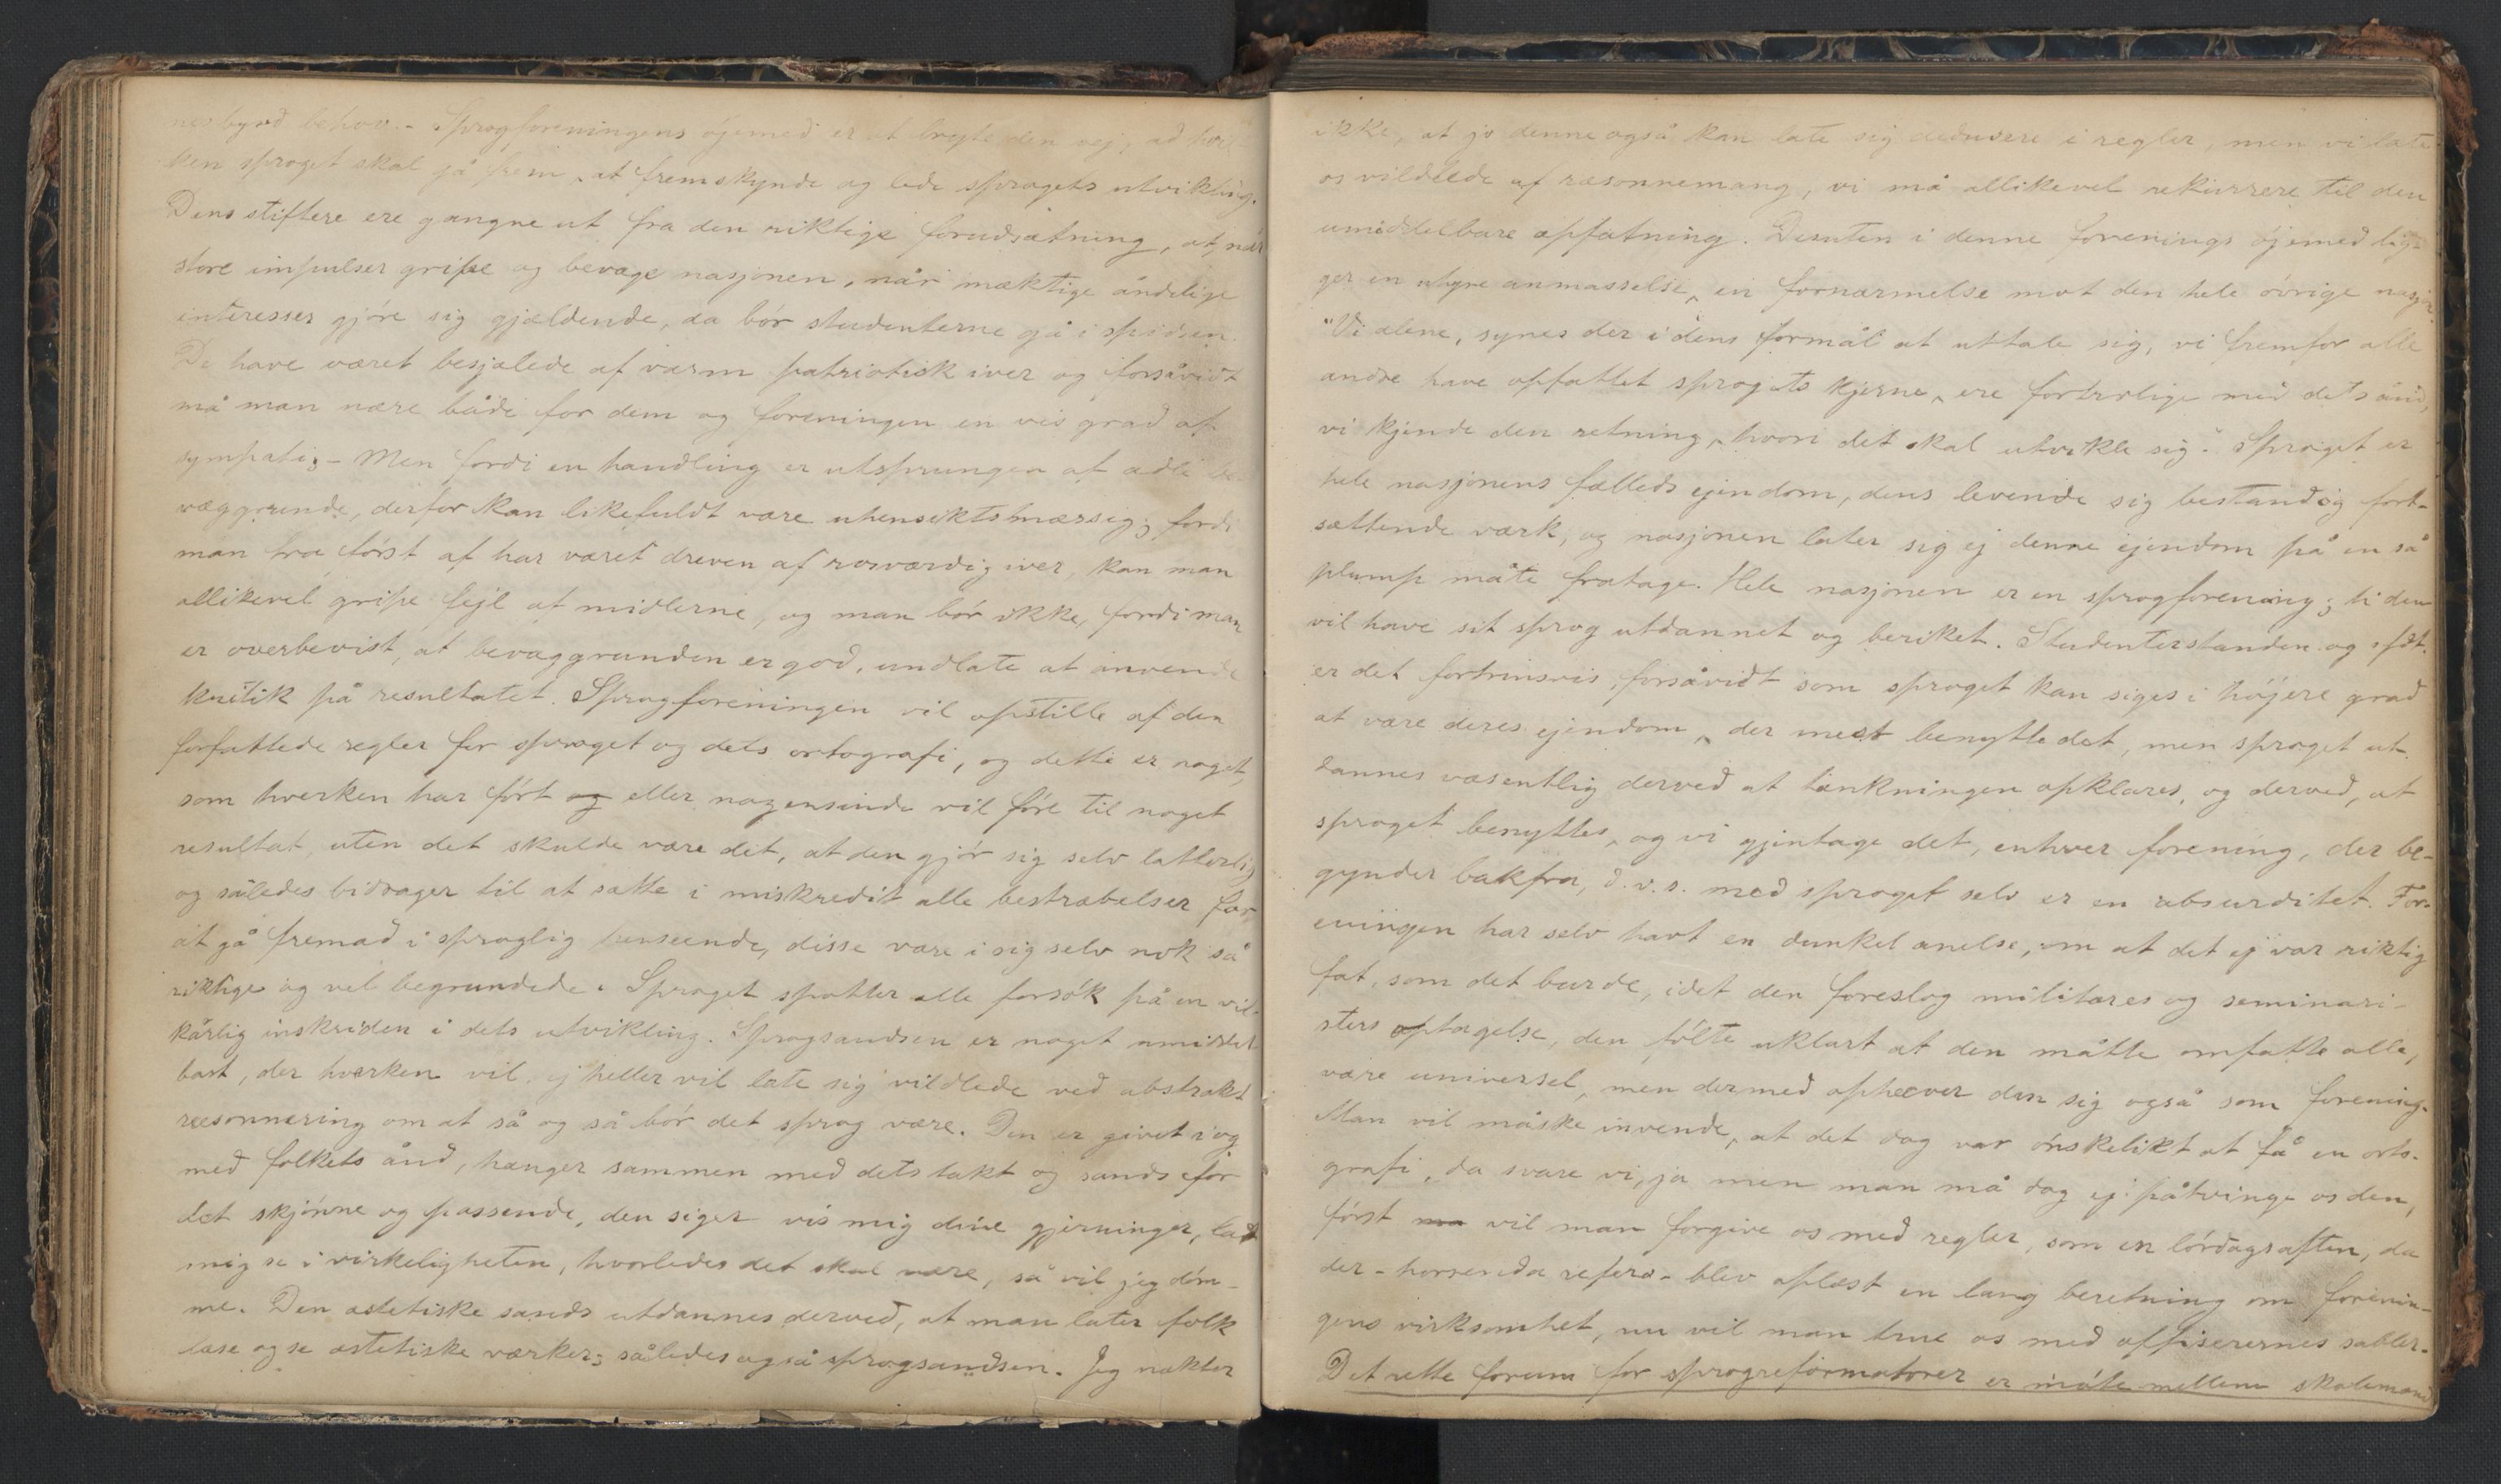 nesbyrd behov. - Sprogforeningens øjemed er at bryte den vej, ad hvil-
ken sproget skal gå frem, at fremskynde og lede sprogets utvikling.
Dens stiftere ere gangne ut fra den riktige forudsætning, at, når
store impulser gripe og bevæge nasjonen, når mæktige åndelige
interesser gjöre sig gjældende, da bör studenterne gå i spidsen.
De have været besjælede af varm patriotisk iver og forsåvidt
må man nære både for dem og foreningen en vis grad af
sympati; - Men fordi en handling er utsprungen af ædle be-
væggrunde, derfor kan likefuldt være uhensiktsmæssig; fordi
man fra först af har været dreven af rosværdig iver, kan man
allikevel gripe fejl af midlerne, og man bör ikke, fordi man
er overbevist, at bevæggrunden er god, undlate at anvende
kritik på resultatet. Sprogforeningen vil opstille af den
forfattede regler for sproget og dets ortografi, og dette er noget,
som hverken har fört og eller nogensinde vil före til noget
resultat, uten det skulde være det, at den gjör sig selv latterlig
og således bidrager til at sætte i miskredit alle bestræbelser for
at gå fremad i sproglig henseende, disse være i sig selv nok så
riktige og vel begrundede. Sproget spotter alle forsök på en vil-
kårlig inskriden i dets utvikling. Sprogsandsen er noget umiddel-
bart, der hverken vil, ej heller vil late sig vildlede ved abstrakt
ræsonnering om at så og så bör det sprog være. Den er givet i og
med folkets ånd, hænger sammen med dets takt og sands for
det skjönne og passende, den siger vis mig dine gjerninger, lad
mig se i virkeligheten, hvorledes det skal være, så vil jeg döm-
me. Den æstetiske sands utdannes derved, at man later folk
læse og se æstetiske værker; således også sprogsandsen. Jeg nækter
ikke, at jo denne også kan late sig dedusere i regler, men vi late
os vildlede af ræsonnemang, vi må allikevel rekurrere til den
umiddelbare opfatning. Desuten i denne forenings øjemed lig-
ger en uhyre anmasselse, en fornærmelse mot den hele övrige nasjon.
"Vi alene, synes der i dens formål at uttale sig, vi fremfor alle
andre have opfattet sprogets kjerne, ere fortrolige med dets ånd,
vi kjende den retning, hvori det skal utvikle sig". Sproget er
hele nasjonens fælleds ejendom, dens levende sig bestandig fort-
sættende værk, og nasjonen later sig ej denne ejendom på en så
plump måte fratage. Hele nasjonen er en sprogforening; ti den
vil have sit sprog utdannet og beriket. Studenterstanden og
er det fortrinsvis, forsåvidt som sproget kan siges i höjere grad
at være deres ejendom, der mest benytte det, men sproget ut-
dannes væsentlig derved at tænkningen opklares, og derved, at
sproget benyttes, og vi gjentage det, enhver forening, der be-
gynder bakfra, d.v.s. med sproget selv er en absurditet. For-
eningen har selv havt en dunkel anelse, om at det ej var riktig
fat, som det burde, idet den foreslog militæres og seminari-
sters optagelse, den fölte uklart at den måtte omfatte alle,
være universel, men dermed ophæver den sig også som forening.
Man vil måske invende, at det dog var önskelikt at få en orto-
grafi, da svare vi, ja men man må dog ej påtvinge os den,
först ma vil man forgive os med regler, som en lördagsaften, da
der - horrenda refero - blev oplæst en lang beretning om forenin-
gens virksomhet, nu vil man true os med offiserernes sabler.
Det rette forum for sprogreformatorer er måte mellem skolemænd